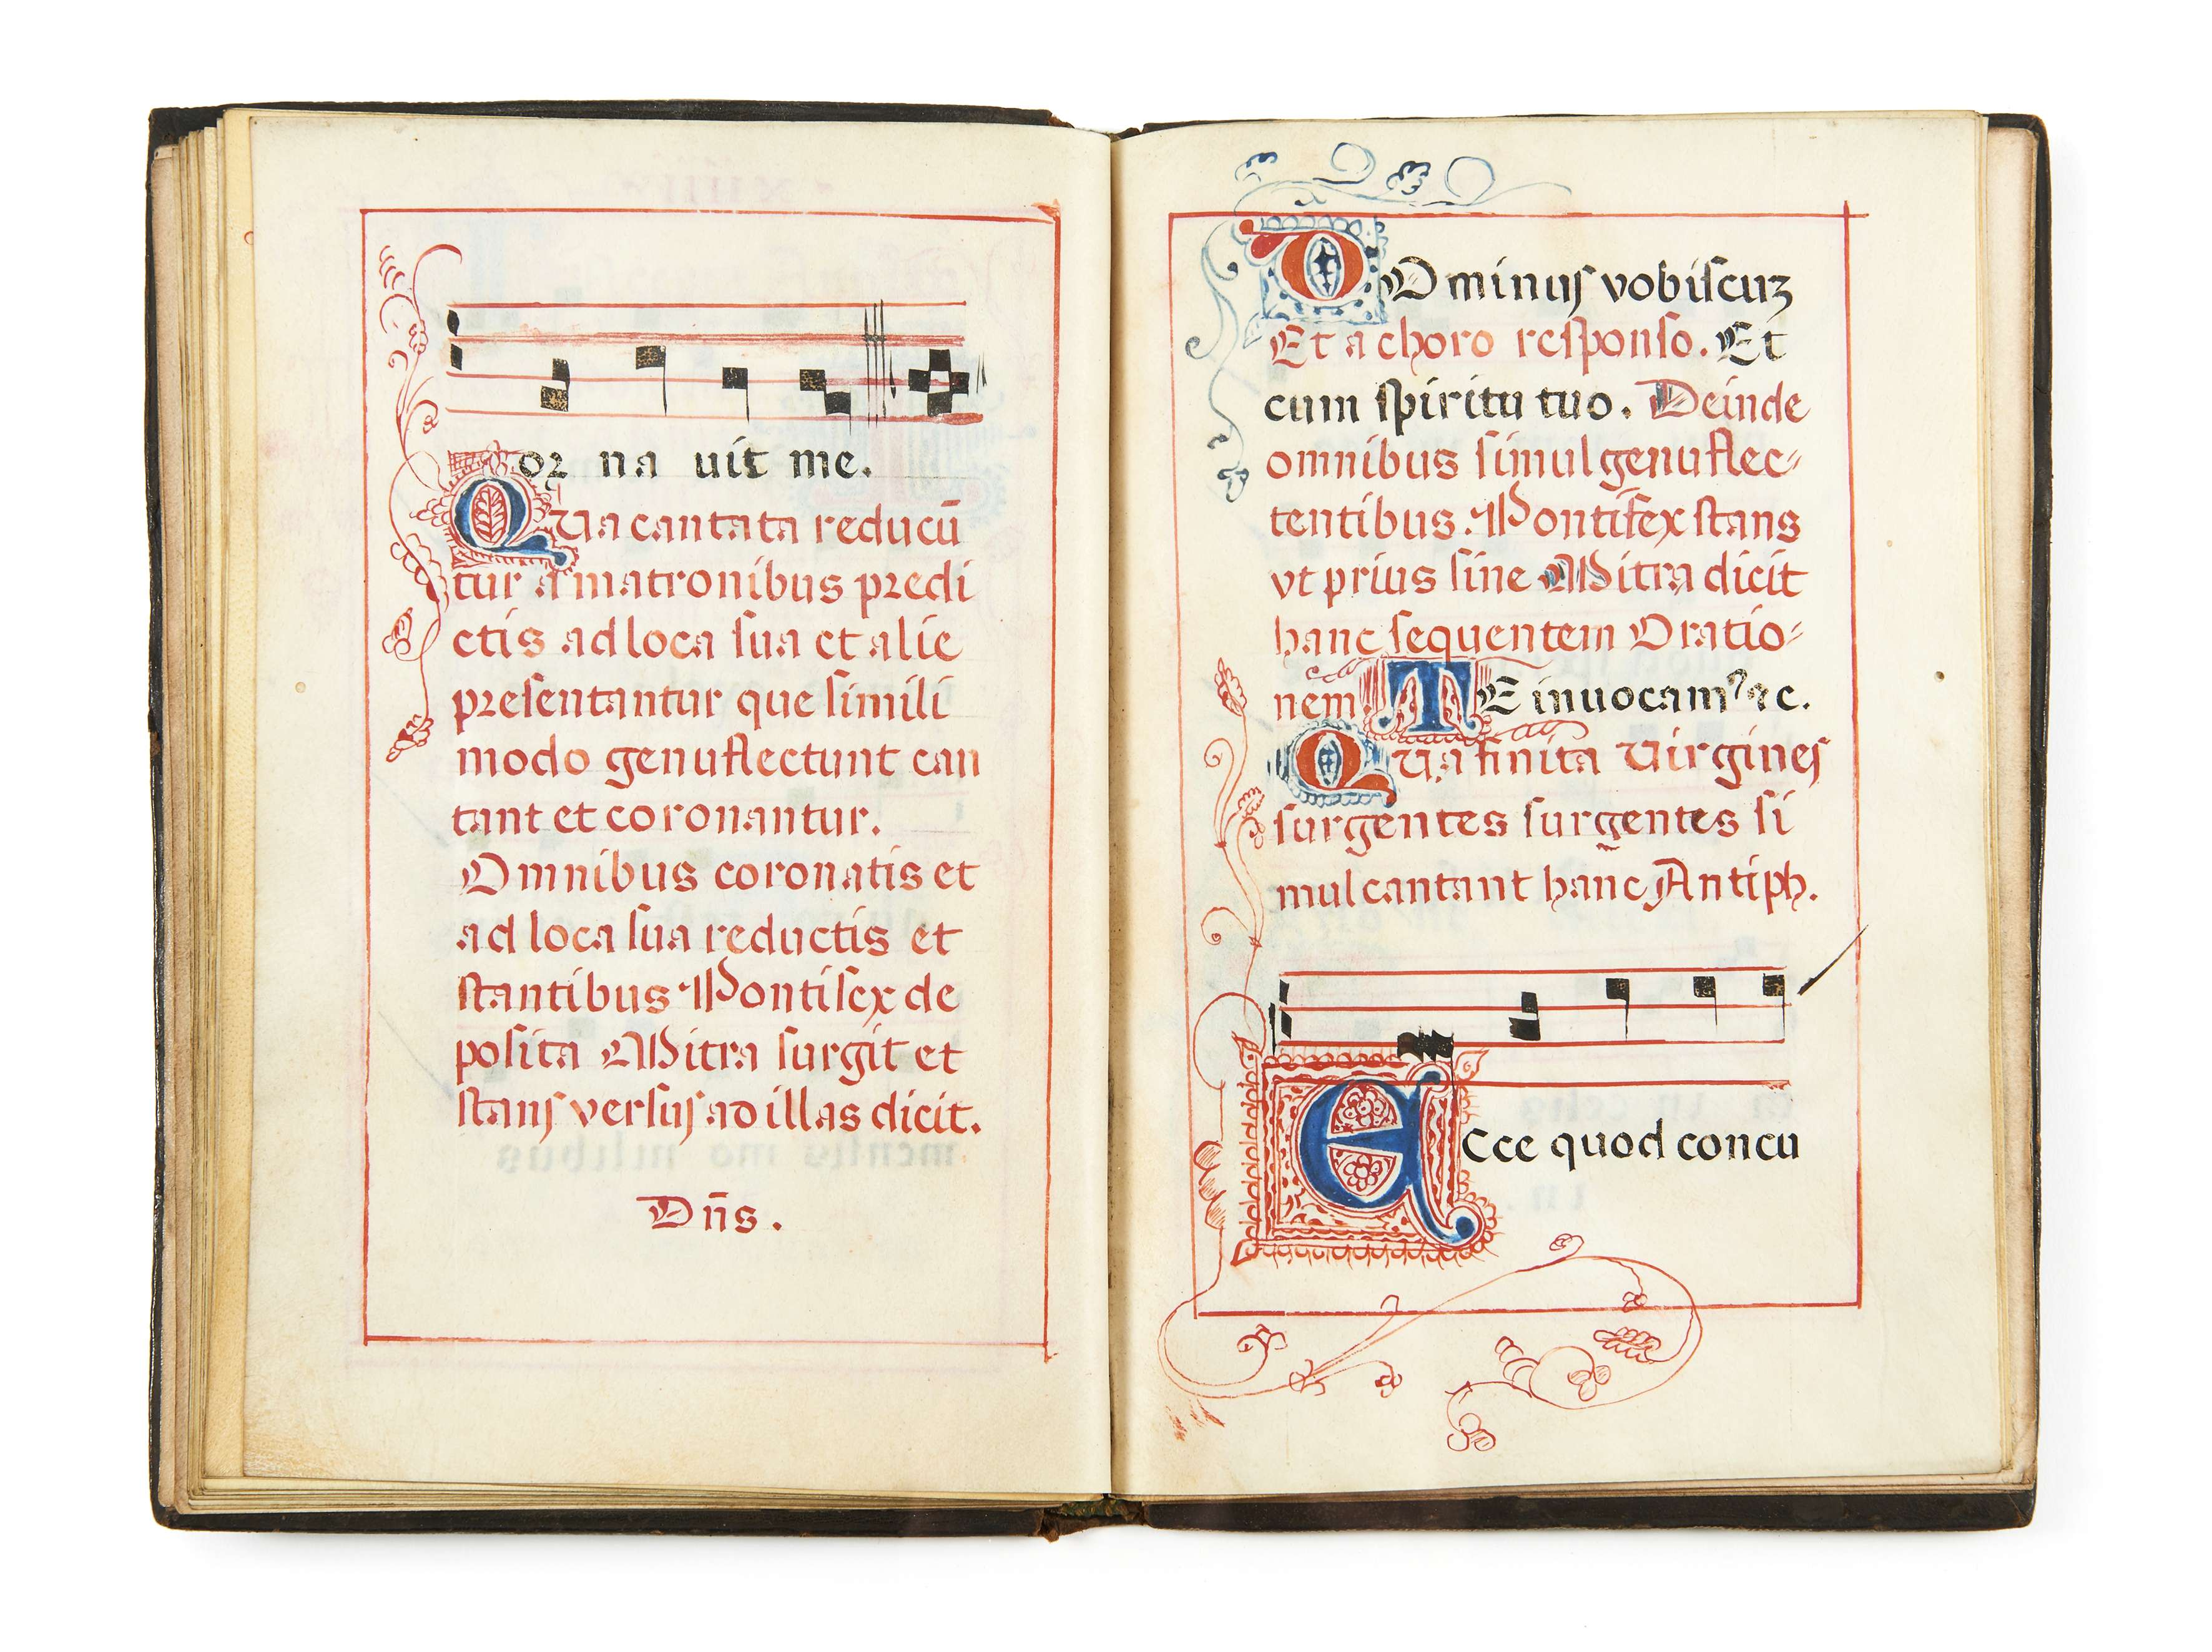 or na uit me.
QUa cantata reducū
tur a matronibus predi
ctis ad loca sua et alie
presentantur que simili
modo genuflectunt can
tant et coronantur.
Omnibus coronatis et
ad loca sua reductis et
stantibus Pontifex de
posita Mitra surgit et
stans versus ad illas dicit.
Dn̄s.
DOminus vobiscuz
Et a choro responso. Et
cum spiritu tuo. Deinde
omnibus simul genuflec-
tentibus. Pontifex stans
vt prius sine Mitra dicit
hanc sequentem Oratio-
nem TE inuocamꝰ ⁊c.
QUa finita Uirgines
surgentes surgentes si
mul cantant hanc Antiph.
ECce quod concu